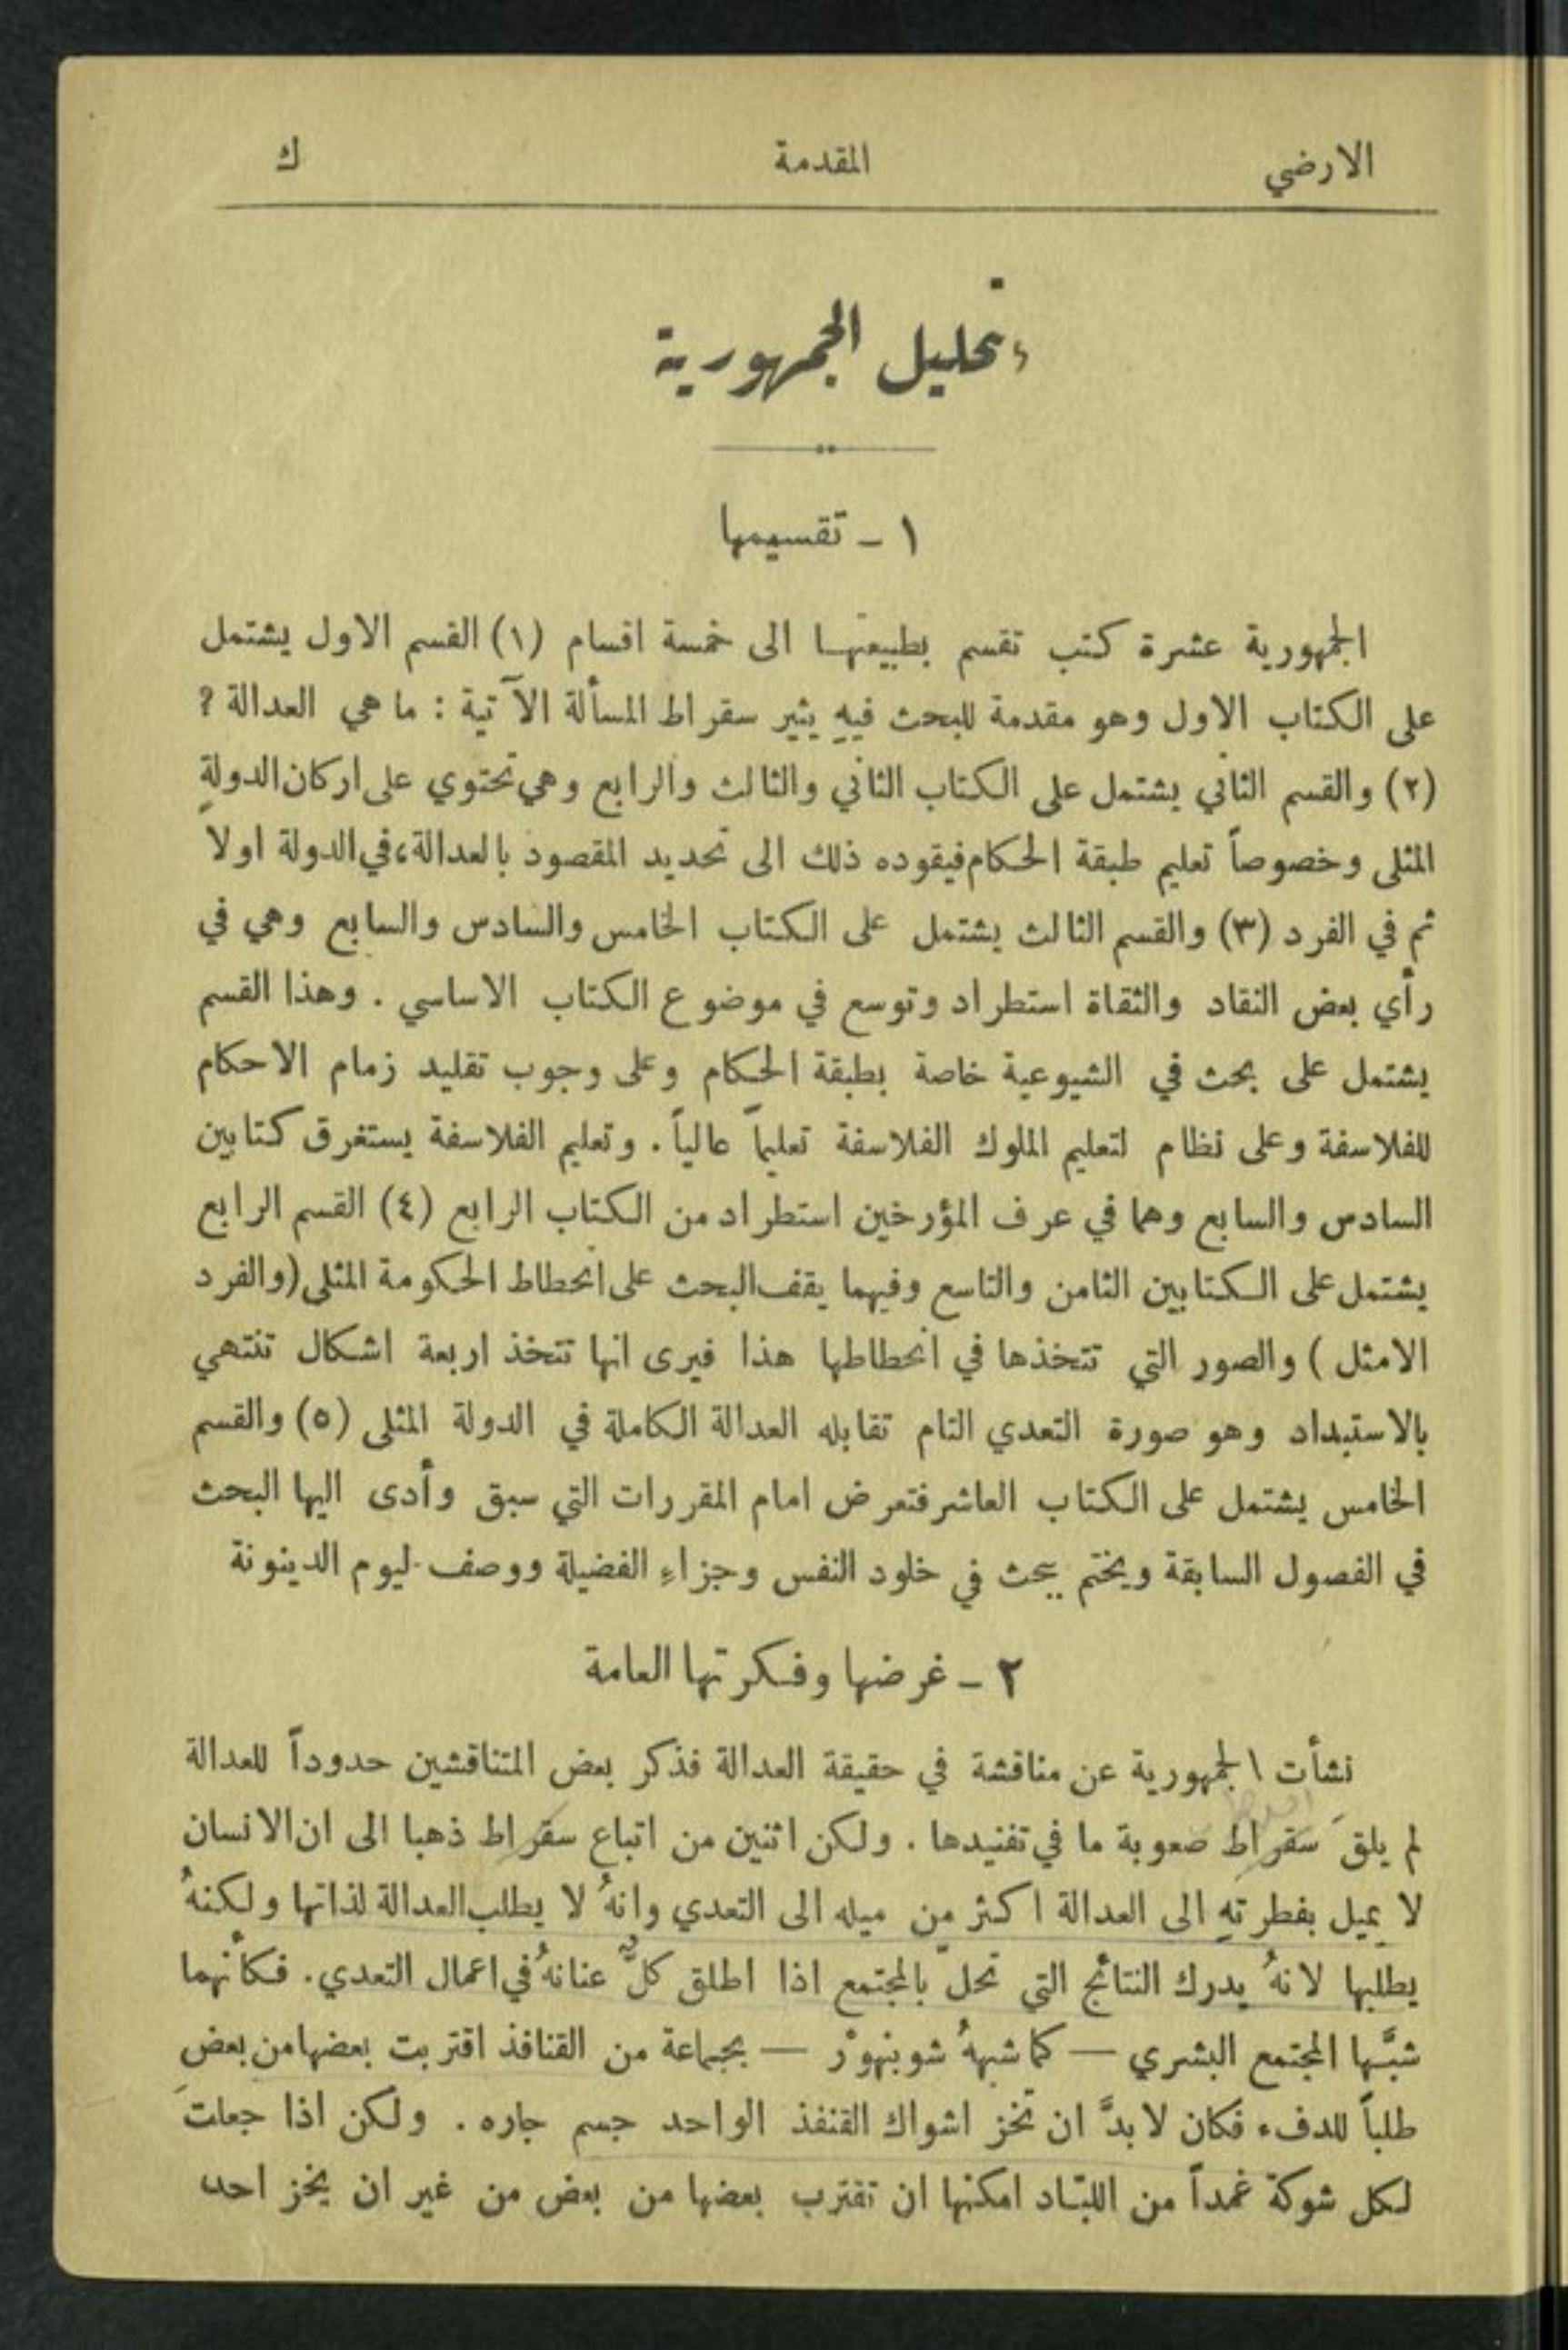 الارضي المقدمة ك
تحليل الجمهورية
١ – تقسيمها
الجمهورية عشرة كتب تقسم بطبيعتها الى خمسة اقسام (١) القسم الاول يشتمل
على الكتاب الاول وهو مقدمة للبحث فيهِ يثير سقراط المسألة الآتية : ما هي العدالة ؟
(٢) والقسم الثاني يشتمل على الكتاب الثاني والثالث والرابع وهي تحتوي على اركان الدولةِ
المثلى وخصوصاً تعليم طبقة الحكام فيقوده ذلك الى تحديد المقصود بالعدالة، في الدولة اولاً
ثم في الفرد (٣) والقسم الثالث يشتمل على الكتاب الخامس والسادس والسابع وهي في
رأي بعض النقاد والثقاة استطراد وتوسع في موضوع الكتاب الاساسي . وهذا القسم
يشتمل على بحث في الشيوعية خاصة بطبقة الحكام وعلى وجوب تقليد زمام الاحكام
للفلاسفة وعلى نظام لتعليم الملوك الفلاسفة تعليماً عالياً . وتعليم الفلاسفة يستغرق كتابين
السادس والسابع وهما في عرف المؤرخين استطراد من الكتاب الرابع (٤) القسم الرابع
يشتمل على الكتابين الثامن والتاسع وفيهما يقف البحث على انحطاط الحكومة المثلى (والفرد
الامثل ) والصور التي تتخذها في انحطاطها هذا فيرى انها تتخذ اربعة اشكال تنتهي
بالاستبداد وهو صورة التعدي التام تقابله العدالة الكاملة في الدولة المثلى (٥) والقسم
الخامس يشتمل على الكتاب العاشر فتعرض امام المقررات التي سبق وأدى اليها البحث
في الفصول السابقة ويختم ببحث في خلود النفس وجزاءِ الفضيلة ووصف ليوم الدينونة
٢ – غرضها وفكرتها العامة
نشأت الجمهورية عن مناقشة في حقيقة العدالة فذكر بعض المتناقشين حدوداً للعدالة
لم يلقَ سقراط صعوبة ما في تفنيدها . ولكن اثنين من اتباع سقراط ذهبا الى ان الانسان
لا يميل بفطرتهِ الى العدالة اكثر من ميله الى التعدي وانهُ لا يطلب العدالة لذاتها ولكنهُ
يطلبها لانهُ يدرك النتائج التي تحلّ بالمجتمع اذا اطلق كلٌّ عنانهُ في اعمال التعدي . فكأنهما
شبَّها المجتمع البشري — كما شبههُ شوبنهوْر — بجماعة من القنافذ اقتربت بعضها من بعض
طلباً للدفء فكان لا بدَّ ان تخز اشواك القنفذ الواحد جسم جاره . ولكن اذا جعلتَ
لكل شوكة غمداً من اللبّاد امكنها ان تقترب بعضها من بعض من غير ان يخز احد